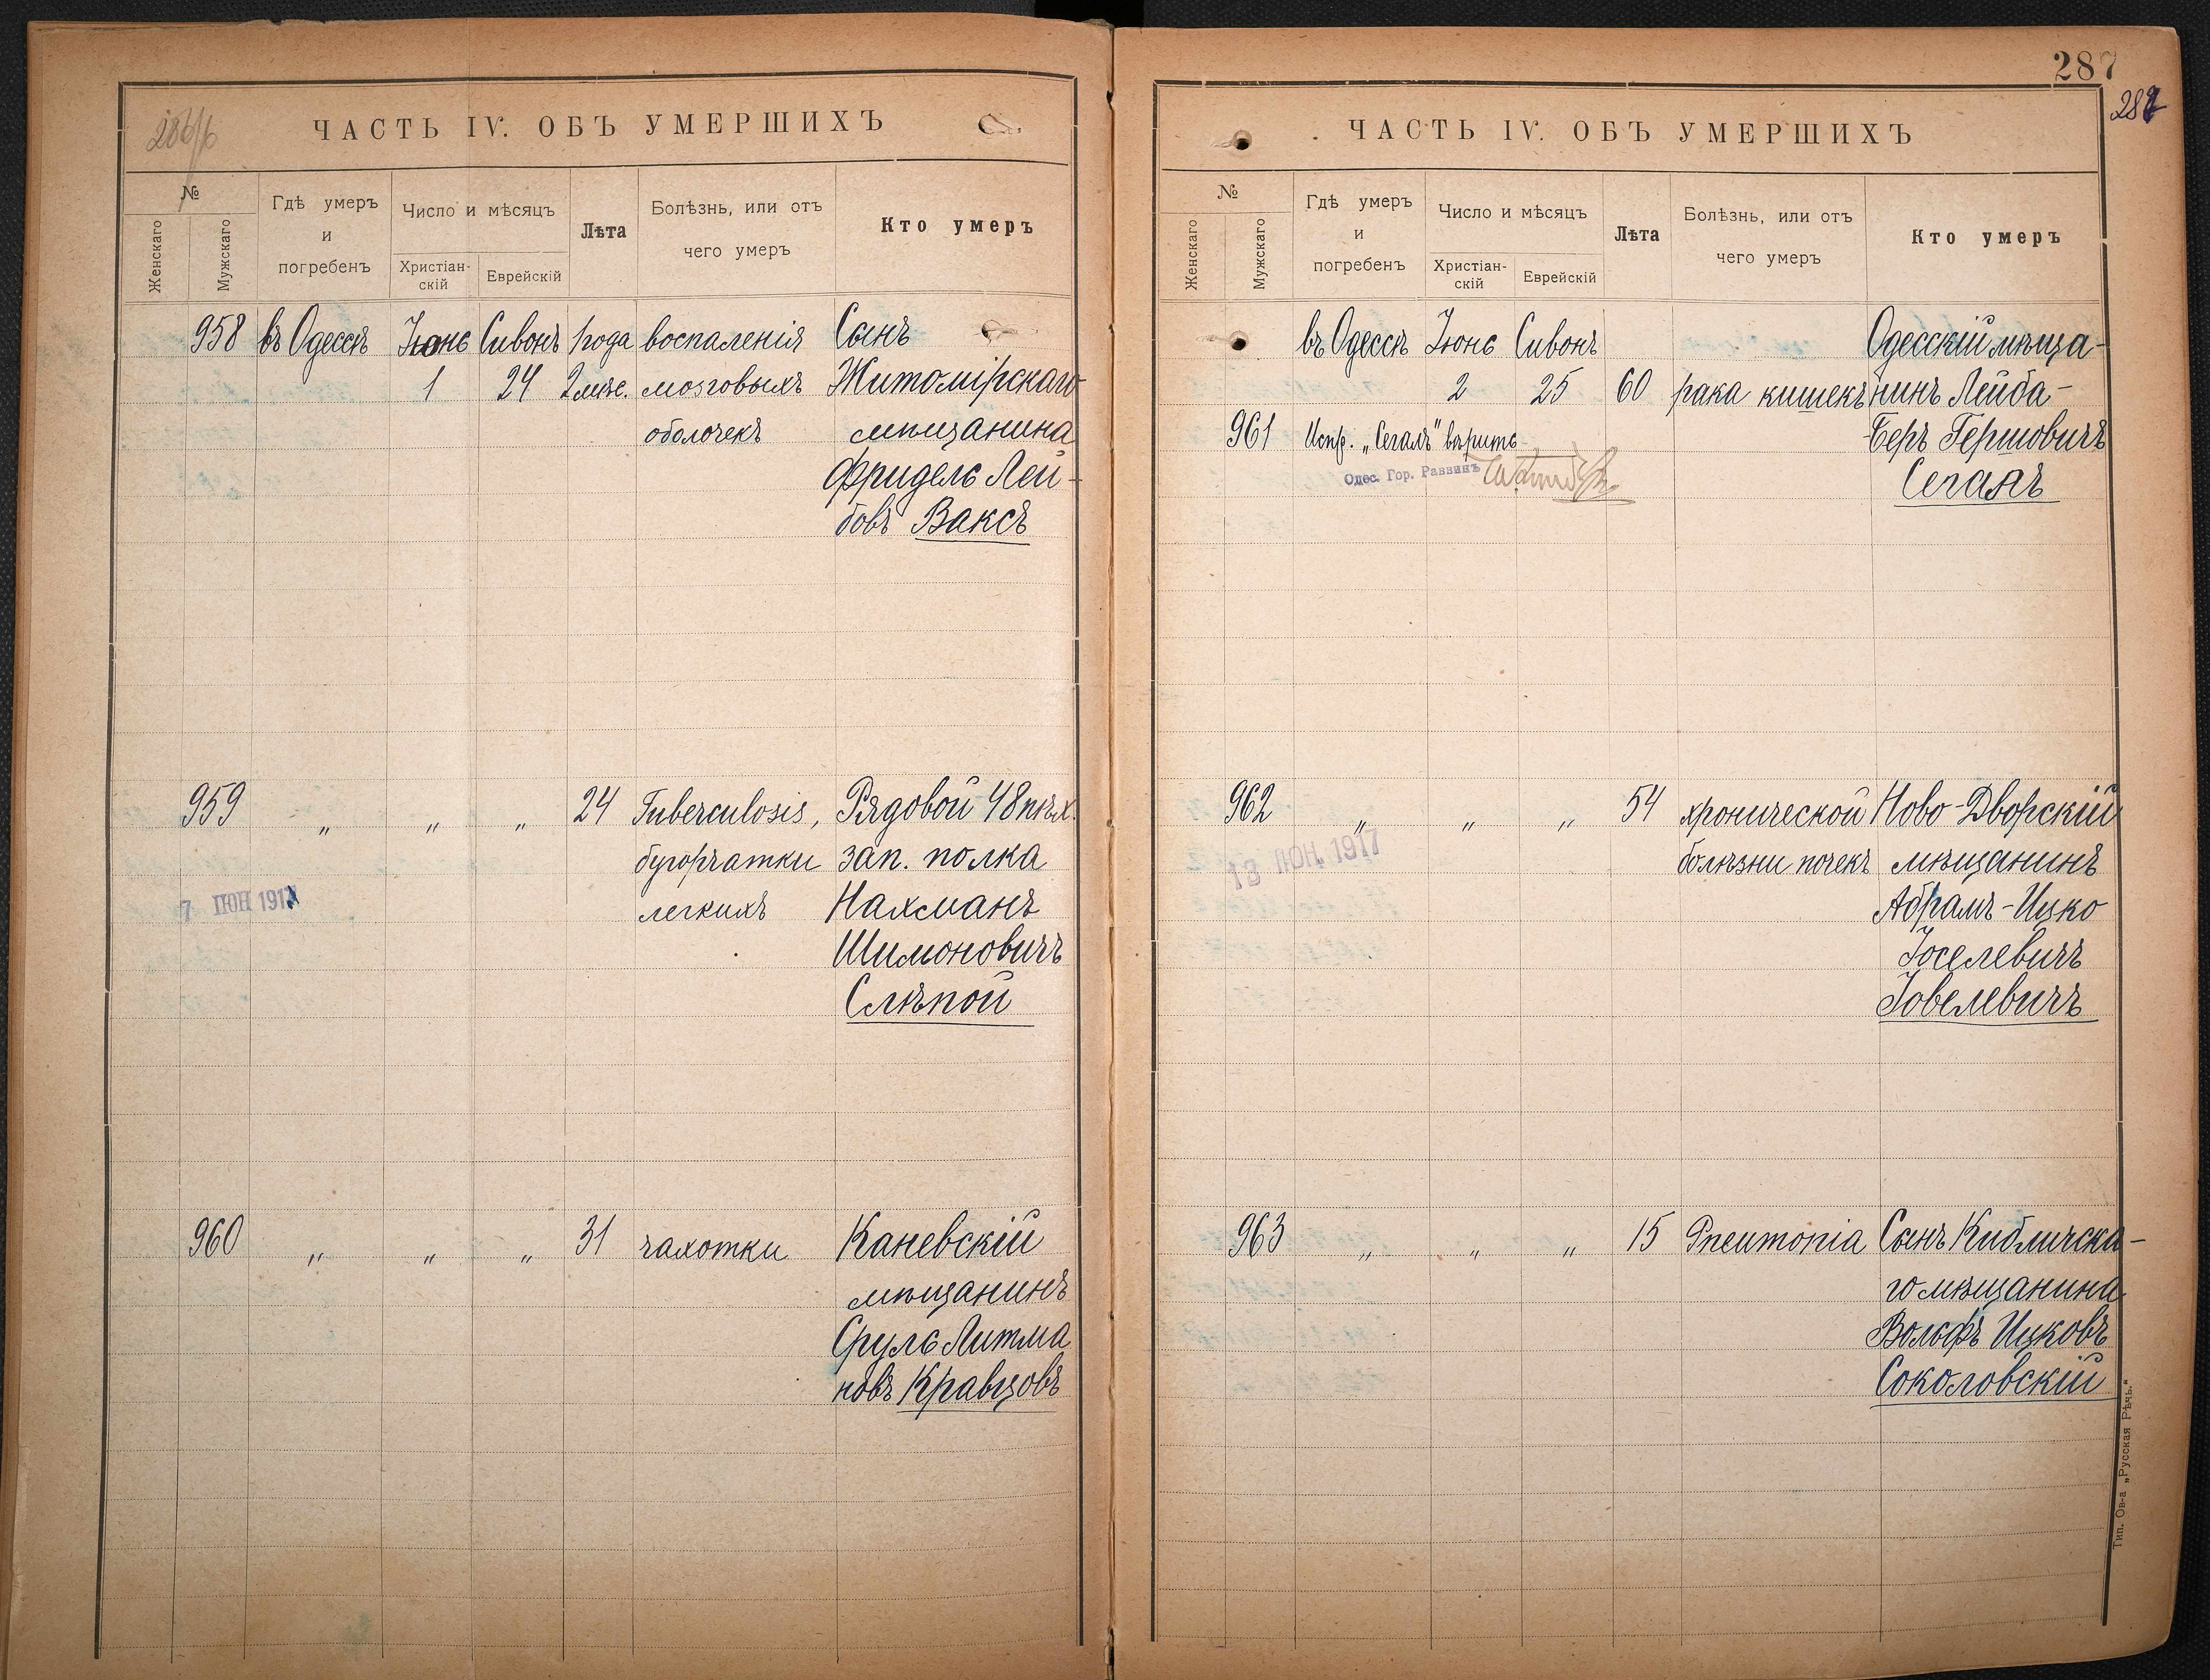 286/б
ЧАСТЬ IV. ОБЪ УМЕРШИХЪ
№
Женскаго
Мужскаго
Гдѣ умеръ
и
погребенъ
Число и мѣсяцъ
Христіан-
скій
Еврейскій
Лѣта
Болѣзнь, или отъ
чего умеръ
Кто умеръ
958 въ Одессѣ Іюнь Сивонъ 1 года воспаленія Сынъ
1 24 2 мѣс. мозговыхъ Житомірскаго
оболочекъ мѣщанина
Фридель Лей-
бовъ Ваксъ
959 „ „ „ 24 Tuberculosis, Рядовой 48 пѣх.
бугорчатки зап. полка
7 ІЮН 1917
легкихъ Нахманъ
Шимоновичъ
Слѣпой
960 „ „ „ 31 чахотки Каневскій
мѣщанинъ
Сруль Литма
новъ Кравцовъ
287
287
ЧАСТЬ IV. ОБЪ УМЕРШИХЪ
№
Женскаго
Мужскаго
Гдѣ умеръ
и
погребенъ
Число и мѣсяцъ
Христіан-
скій
Еврейскій
Лѣта
Болѣзнь, или отъ
чего умеръ
Кто умеръ
въ Одессѣ Іюнь Сивонъ Одесскій мѣща-
2 25 60 рака кишекъ нинъ Лейба-
961 Испр. „Сегалъ" вѣрить Беръ Гершовичъ
Одес. Гор. Раввинъ Сегалъ
962 „ „ „ 54 хронической Ново-Дворскій
13 ІЮН. 1917
болѣзни почекъ мѣщанинъ
Абрамъ-Ицко
Іоселевичъ
Іовелевичъ
963 „ „ „ 15 Pneumonia Сынъ Кибличска-
го мѣщанина
Вольфъ Ицковъ
Соколовскій
Тип. Ов-а „Русская Рѣчь."